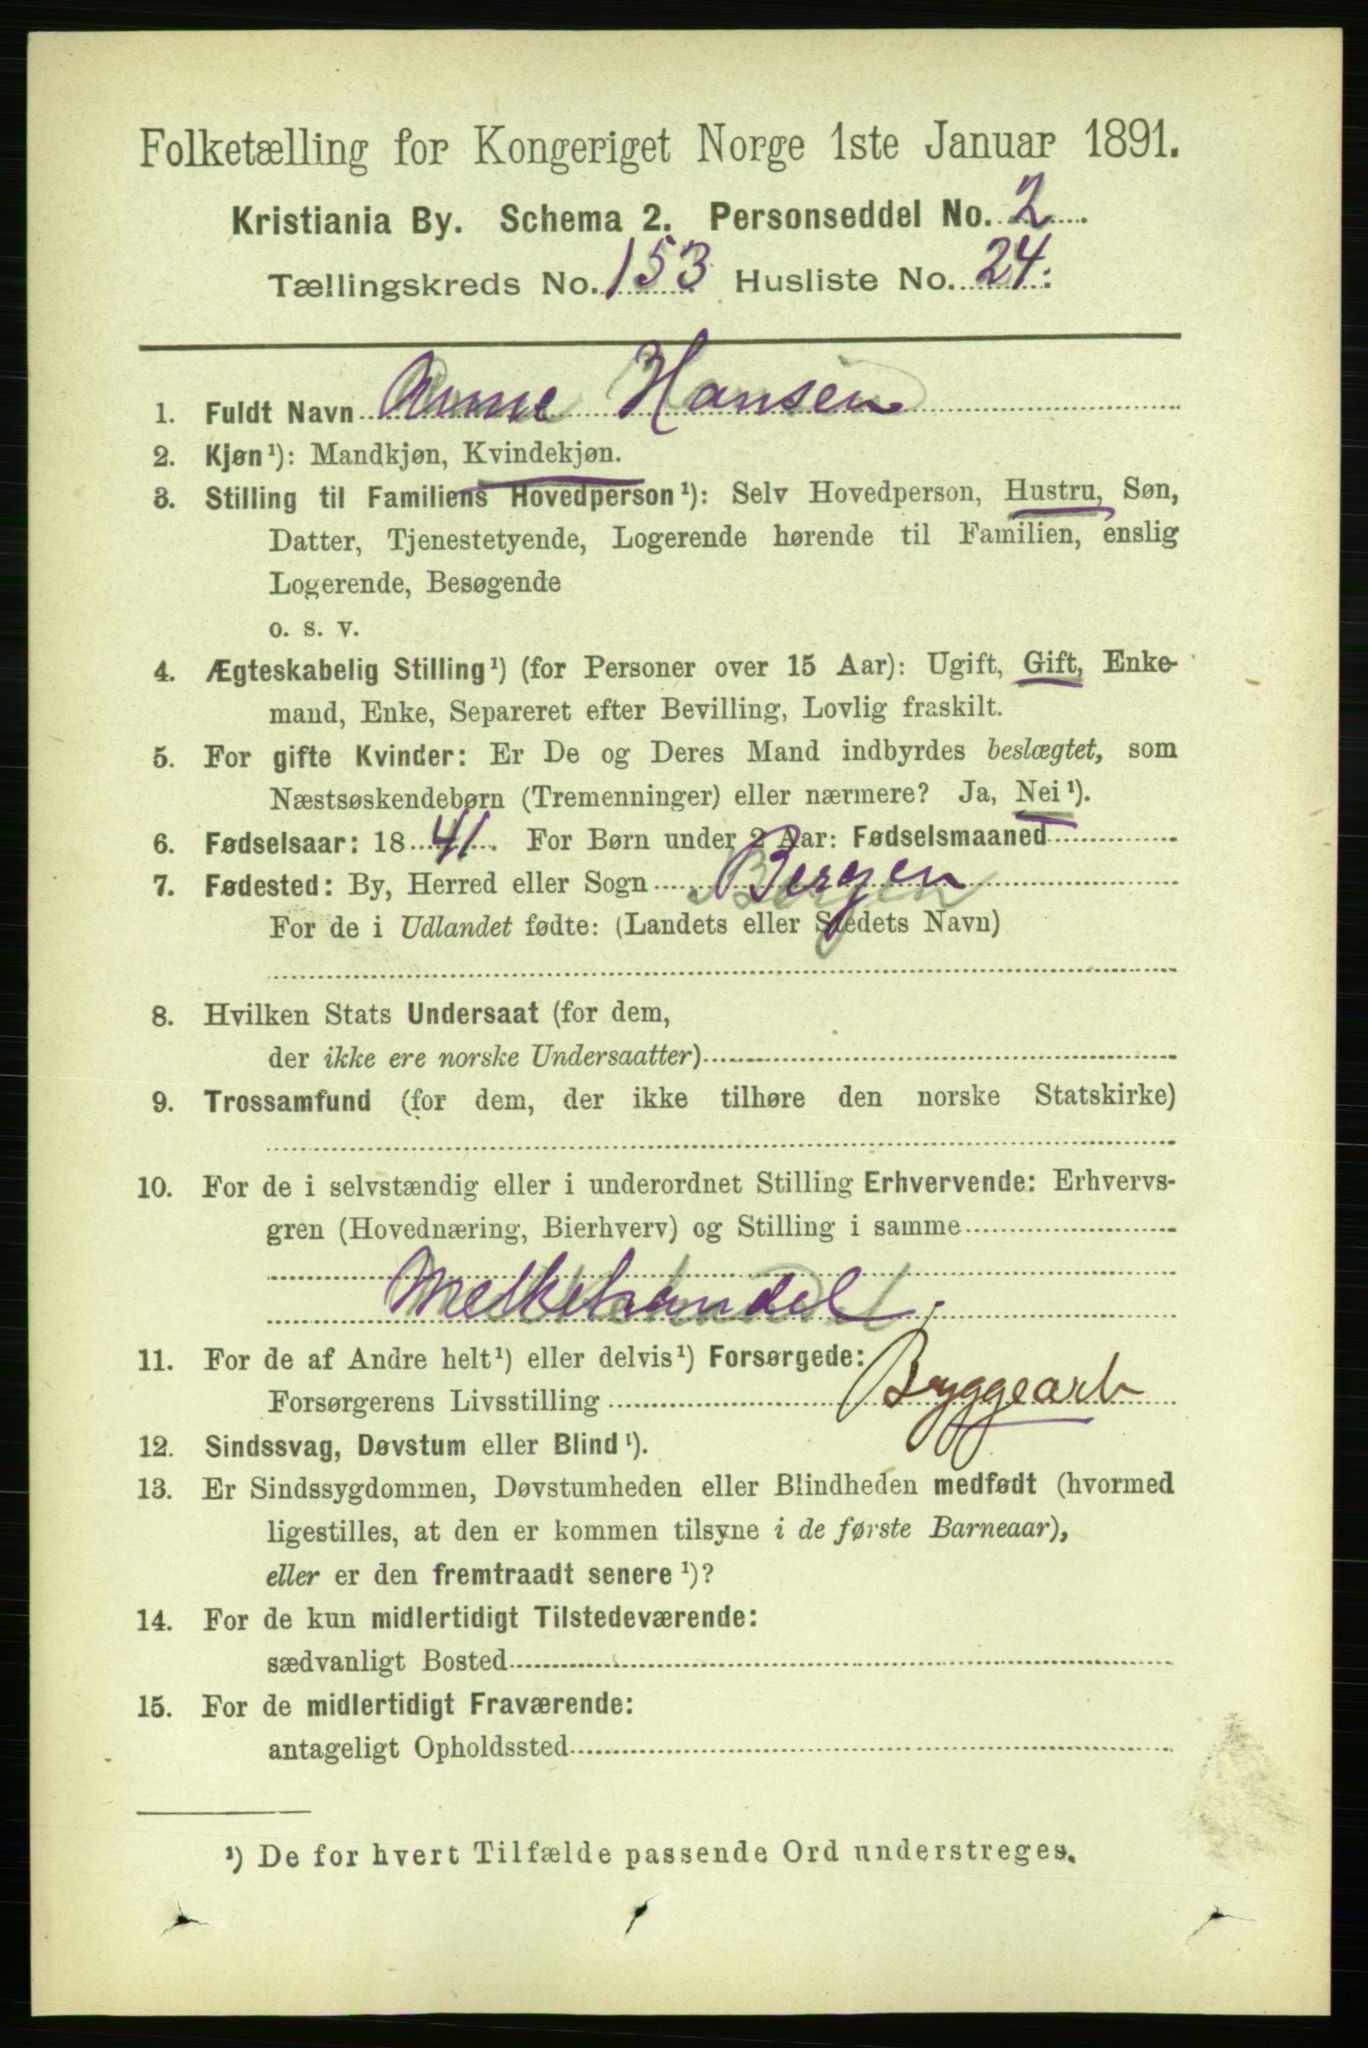 Folketælling for Kongeriget Norge 1ste Januar 1891.
Kristiania By. Schema 2. Personseddel No. 2
Tællingskreds No. 153 Husliste No. 24.
1. Fuldt Navn Anne Hansen
2. Kjøn¹): Mandkjøn, Kvindekjøn.
3. Stilling til Familiens Hovedperson¹): Selv Hovedperson, Hustru, Søn,
Datter, Tjenestetyende, Logerende hørende til Familien, enslig
Logerende, Besøgende
o. s. v.
4. Ægteskabelig Stilling¹) (for Personer over 15 Aar): Ugift, Gift, Enke-
mand, Enke, Separeret efter Bevilling, Lovlig fraskilt.
5. For gifte Kvinder: Er De og Deres Mand indbyrdes beslægtet, som
Næstsøskendebørn (Tremenninger) eller nærmere? Ja, Nei¹).
6. Fødselsaar: 1841. For Børn under 2 Aar: Fødselsmaaned
7. Fødested: By, Herred eller Sogn Bergen
For de i Udlandet fødte: (Landets eller Stedets Navn)
8. Hvilken Stats Undersaat (for dem,
der ikke ere norske Undersaatter)
9. Trossamfund (for dem, der ikke tilhøre den norske Statskirke)
10. For de i selvstændig eller i underordnet Stilling Erhvervende: Erhvervs-
gren (Hovednæring, Bierhverv) og Stilling i samme
Melkehandel.
11. For de af Andre helt¹) eller delvis¹) Forsørgede:
Forsørgerens Livsstilling Bryggearb
12. Sindssvag, Døvstum eller Blind¹).
13. Er Sindssygdommen, Døvstumheden eller Blindheden medfødt (hvormed
ligestilles, at den er kommen tilsyne i de første Barneaar),
eller er den fremtraadt senere¹)?
14. For de kun midlertidigt Tilstedeværende:
sædvanligt Bosted
15. For de midlertidigt Fraværende:
antageligt Opholdssted
¹) De for hvert Tilfælde passende Ord understreges.